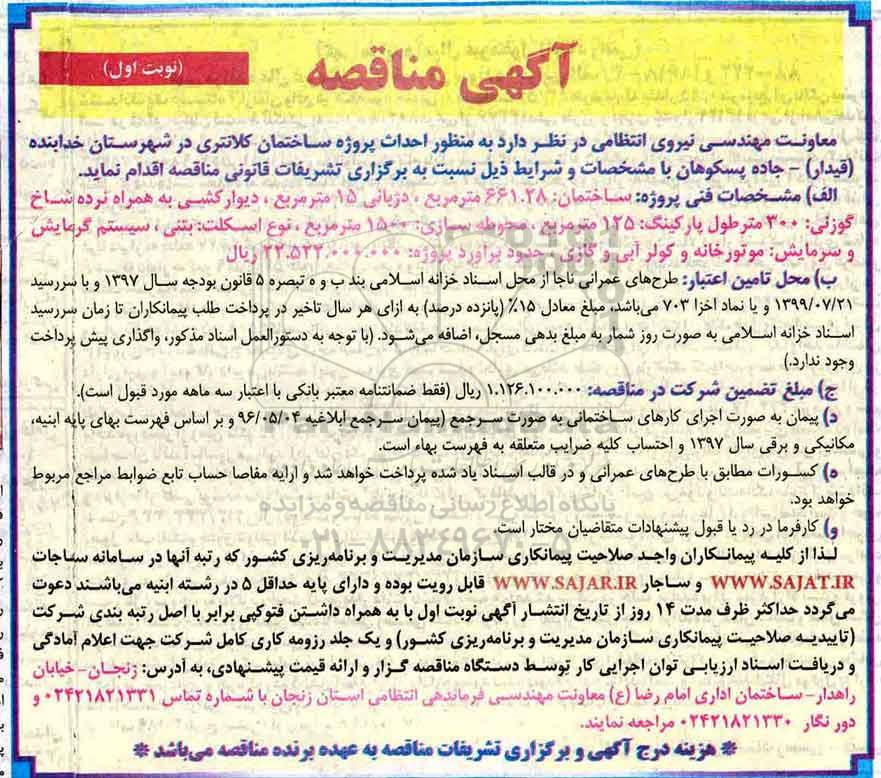 آگهی مناقصه
(نوبت اول)
معاونت مهندسی نیروی انتظامی در نظر دارد به منظور احداث پروژه ساختمان کلانتری در شهرستان خدابنده
(قیدار) - جاده پسکوهان با مشخصات و شرایط ذیل نسبت به برگزاری تشریفات قانونی مناقصه اقدام نماید.
الف) مشخصات فنی پروژه: ساختمان: ۶۶۱.۲۸ مترمربع ، دژبانی ۱۵ مترمربع ، دیوارکشی به همراه نرده شاخ
گوزنی: ۳۰۰ مترطول پارکینگ: ۱۲۵ مترمربع ، محوطه سازی: ۱۵۰۰ مترمربع ، نوع اسکلت: بتنی ، سیستم گرمایش
و سرمایش: موتورخانه و کولر آبی و گازی ، حدود برآورد پروژه: ۲۲.۵۲۲.۰۰۰.۰۰۰ ریال
ب) محل تامین اعتبار: طرح‌های عمرانی ناجا از محل اسناد خزانه اسلامی بند ب و ه تبصره ۵ قانون بودجه سال ۱۳۹۷ و با سررسید
۱۳۹۹/۰۷/۲۱ و یا نماد اخزا ۷۰۳ می‌باشد، مبلغ معادل ۱۵٪ (پانزده درصد) به ازای هر سال تاخیر در پرداخت طلب پیمانکاران تا زمان سررسید
اسناد خزانه اسلامی به صورت روز شمار به مبلغ بدهی مسجل، اضافه می‌شود. (با توجه به دستورالعمل اسناد مذکور، واگذاری پیش پرداخت
وجود ندارد.)
ج) مبلغ تضمین شرکت در مناقصه: ۱.۱۲۶.۱۰۰.۰۰۰ ریال (فقط ضمانتنامه معتبر بانکی با اعتبار سه ماهه مورد قبول است).
د) پیمان به صورت اجرای کارهای ساختمانی به صورت سرجمع (پیمان سرجمع ابلاغیه ۹۶/۰۵/۰۴ و بر اساس فهرست بهای پایه ابنیه،
مکانیکی و برقی سال ۱۳۹۷ و احتساب کلیه ضرایب متعلقه به فهرست بهاء است.
ه) کسورات مطابق با طرح‌های عمرانی و در قالب اسناد یاد شده پرداخت خواهد شد و ارایه مفاصا حساب تابع ضوابط مراجع مربوط
خواهد بود.
و) کارفرما در رد یا قبول پیشنهادات متقاضیان مختار است.
لذا از کلیه پیمانکاران واجد صلاحیت پیمانکاری سازمان مدیریت و برنامه‌ریزی کشور که رتبه آنها در سامانه ساجات
WWW.SAJAT.IR و ساجار WWW.SAJAR.IR قابل رویت بوده و دارای پایه حداقل ۵ در رشته ابنیه می‌باشند دعوت
می‌گردد حداکثر ظرف مدت ۱۴ روز از تاریخ انتشار آگهی نوبت اول با به همراه داشتن فتوکپی برابر با اصل رتبه بندی شرکت
(تاییدیه صلاحیت پیمانکاری سازمان مدیریت و برنامه‌ریزی کشور) و یک جلد رزومه کاری کامل شرکت جهت اعلام آمادگی
و دریافت اسناد ارزیابی توان اجرایی کار توسط دستگاه مناقصه گزار و ارائه قیمت پیشنهادی، به آدرس: زنجان - خیابان
راهدار- ساختمان اداری امام رضا (ع) معاونت مهندسی فرماندهی انتظامی استان زنجان با شماره تماس ۰۲۴۲۱۸۲۱۳۳۱ و
دور نگار ۰۲۴۲۱۸۲۱۳۳۰ مراجعه نمایند.
* هزینه درج آگهی و برگزاری تشریفات مناقصه به عهده برنده مناقصه می‌باشد *
پایگاه اطلاع رسانی مناقصه و مزایده